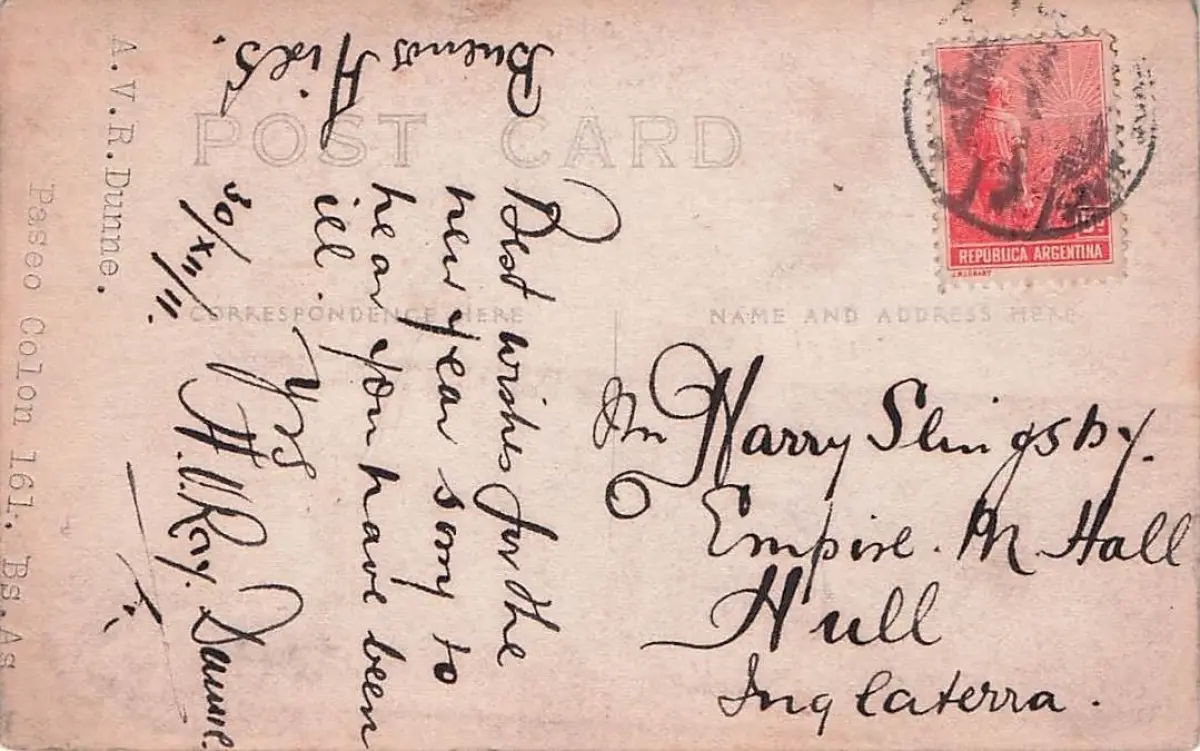 POST CARD
CORRESPONDENCE HERE
NAME AND ADDRESS HERE
Buenos
Aires.
Best wishes for the
new year sorry to
hear you have been
ill.
Yrs
30/XII/11.
A.V.Ray. Dunne.
A.V.R.Dunne.
Paseo Colon 161. Bs.As
REPUBLICA ARGENTINA
Harry Slingsby.
Empire. M. Hall
Hull
Inglaterra.